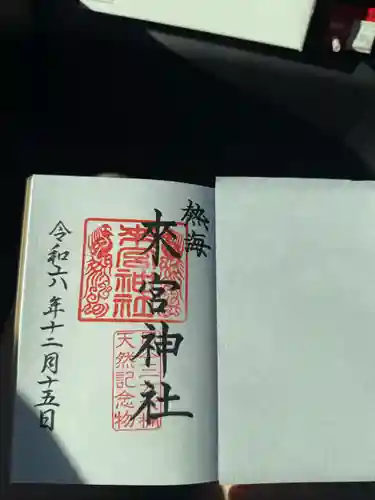 熱海
來宮神社
天然記念物
令和六年十二月十五日